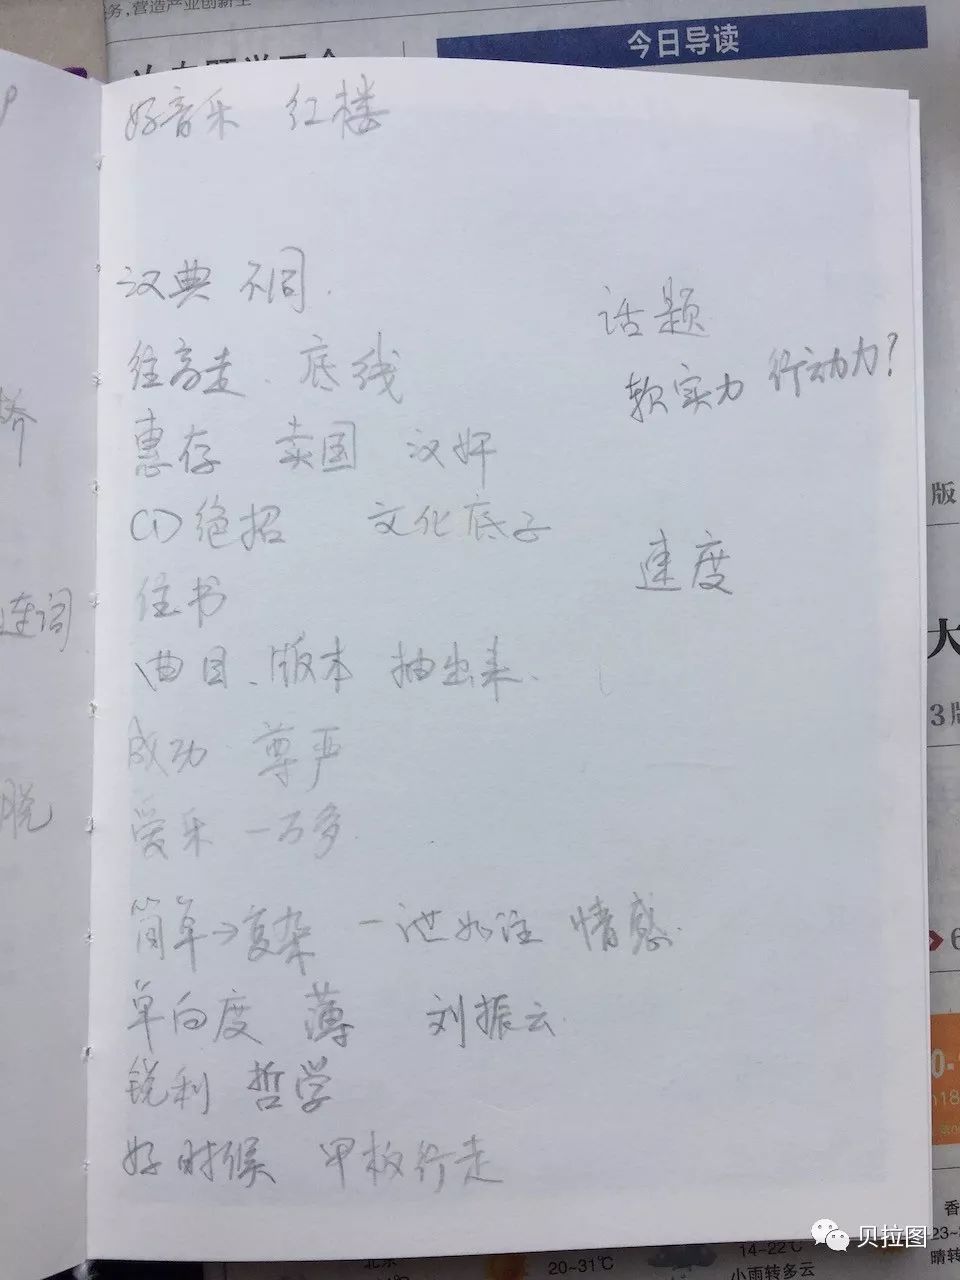 务,营造产业创新生
今日导读
好音乐 红楼
汉典 不同.
往高走. 底线
话题
软实力 行动力?
惠存 卖国 汉奸
CD绝招 文化底子
速度
住书
曲目、版本 抽出来.
成功 尊严
爱乐 一万多.
简单→复杂 一泄如注 情感.
单向度 薄 刘振云
锐利 哲学
好时候 甲板行走
桥
连词
脱
版
大
3版
6
香
20~31℃
14~22℃
小雨转多云
晴转
贝拉图